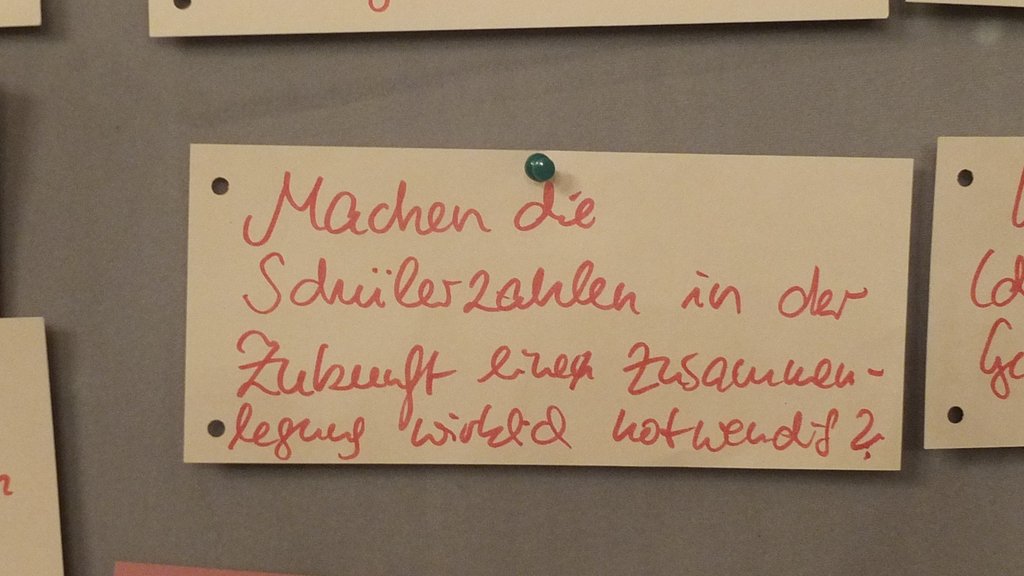 Machen die
Schülerzahlen in der
Zukunft eine Zusammen-
legung wirklich notwendig?